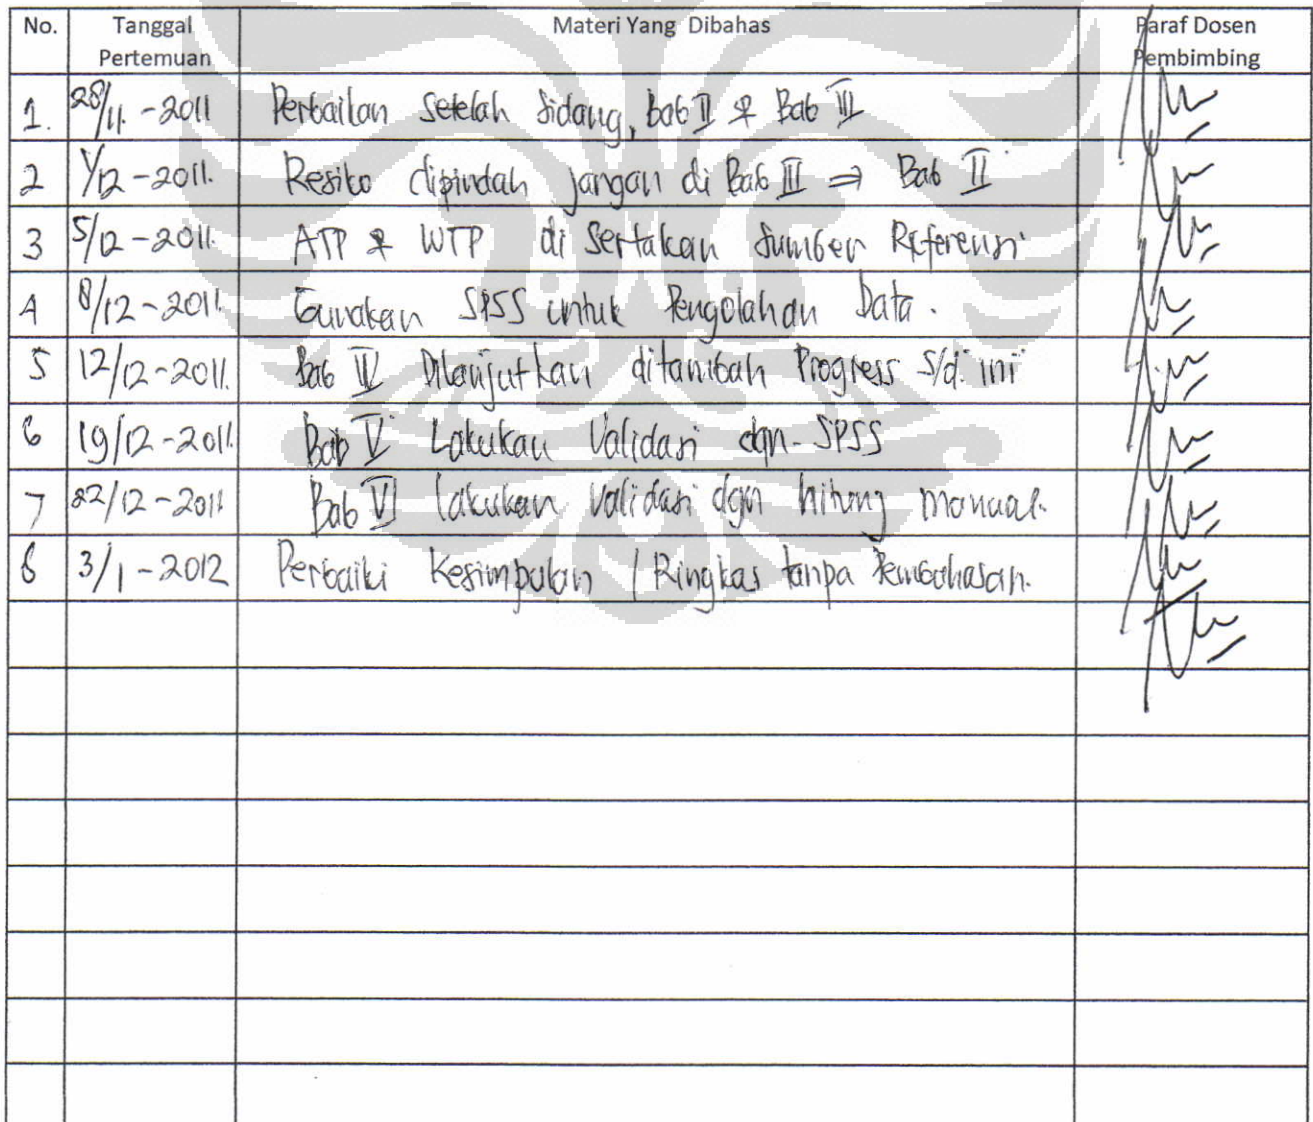 No. Tanggal Pertemuan Materi Yang Dibahas Paraf Dosen Pembimbing
1. 28/11 - 2011 Perbaikan Setelah Sidang, Bab II & Bab III
2 1/12 - 2011. Resiko dipindah jangan di Bab III ⇒ Bab II
3 5/12 - 2011. ATP & WTP di Sertakan Sumber Referensi
4 8/12 - 2011. Gunakan SPSS untuk Pengolahan Data.
5 12/12 - 2011. Bab IV Dilanjutkan ditambah Progress s/d. ini
6 19/12 - 2011. Bab V Lakukan Validasi dgn SPSS
7 22/12 - 2011 Bab VI lakukan Validasi dgn hitung manual.
8 3/1 - 2012 Perbaiki Kesimpulan / Ringkas tanpa Pembahasan.